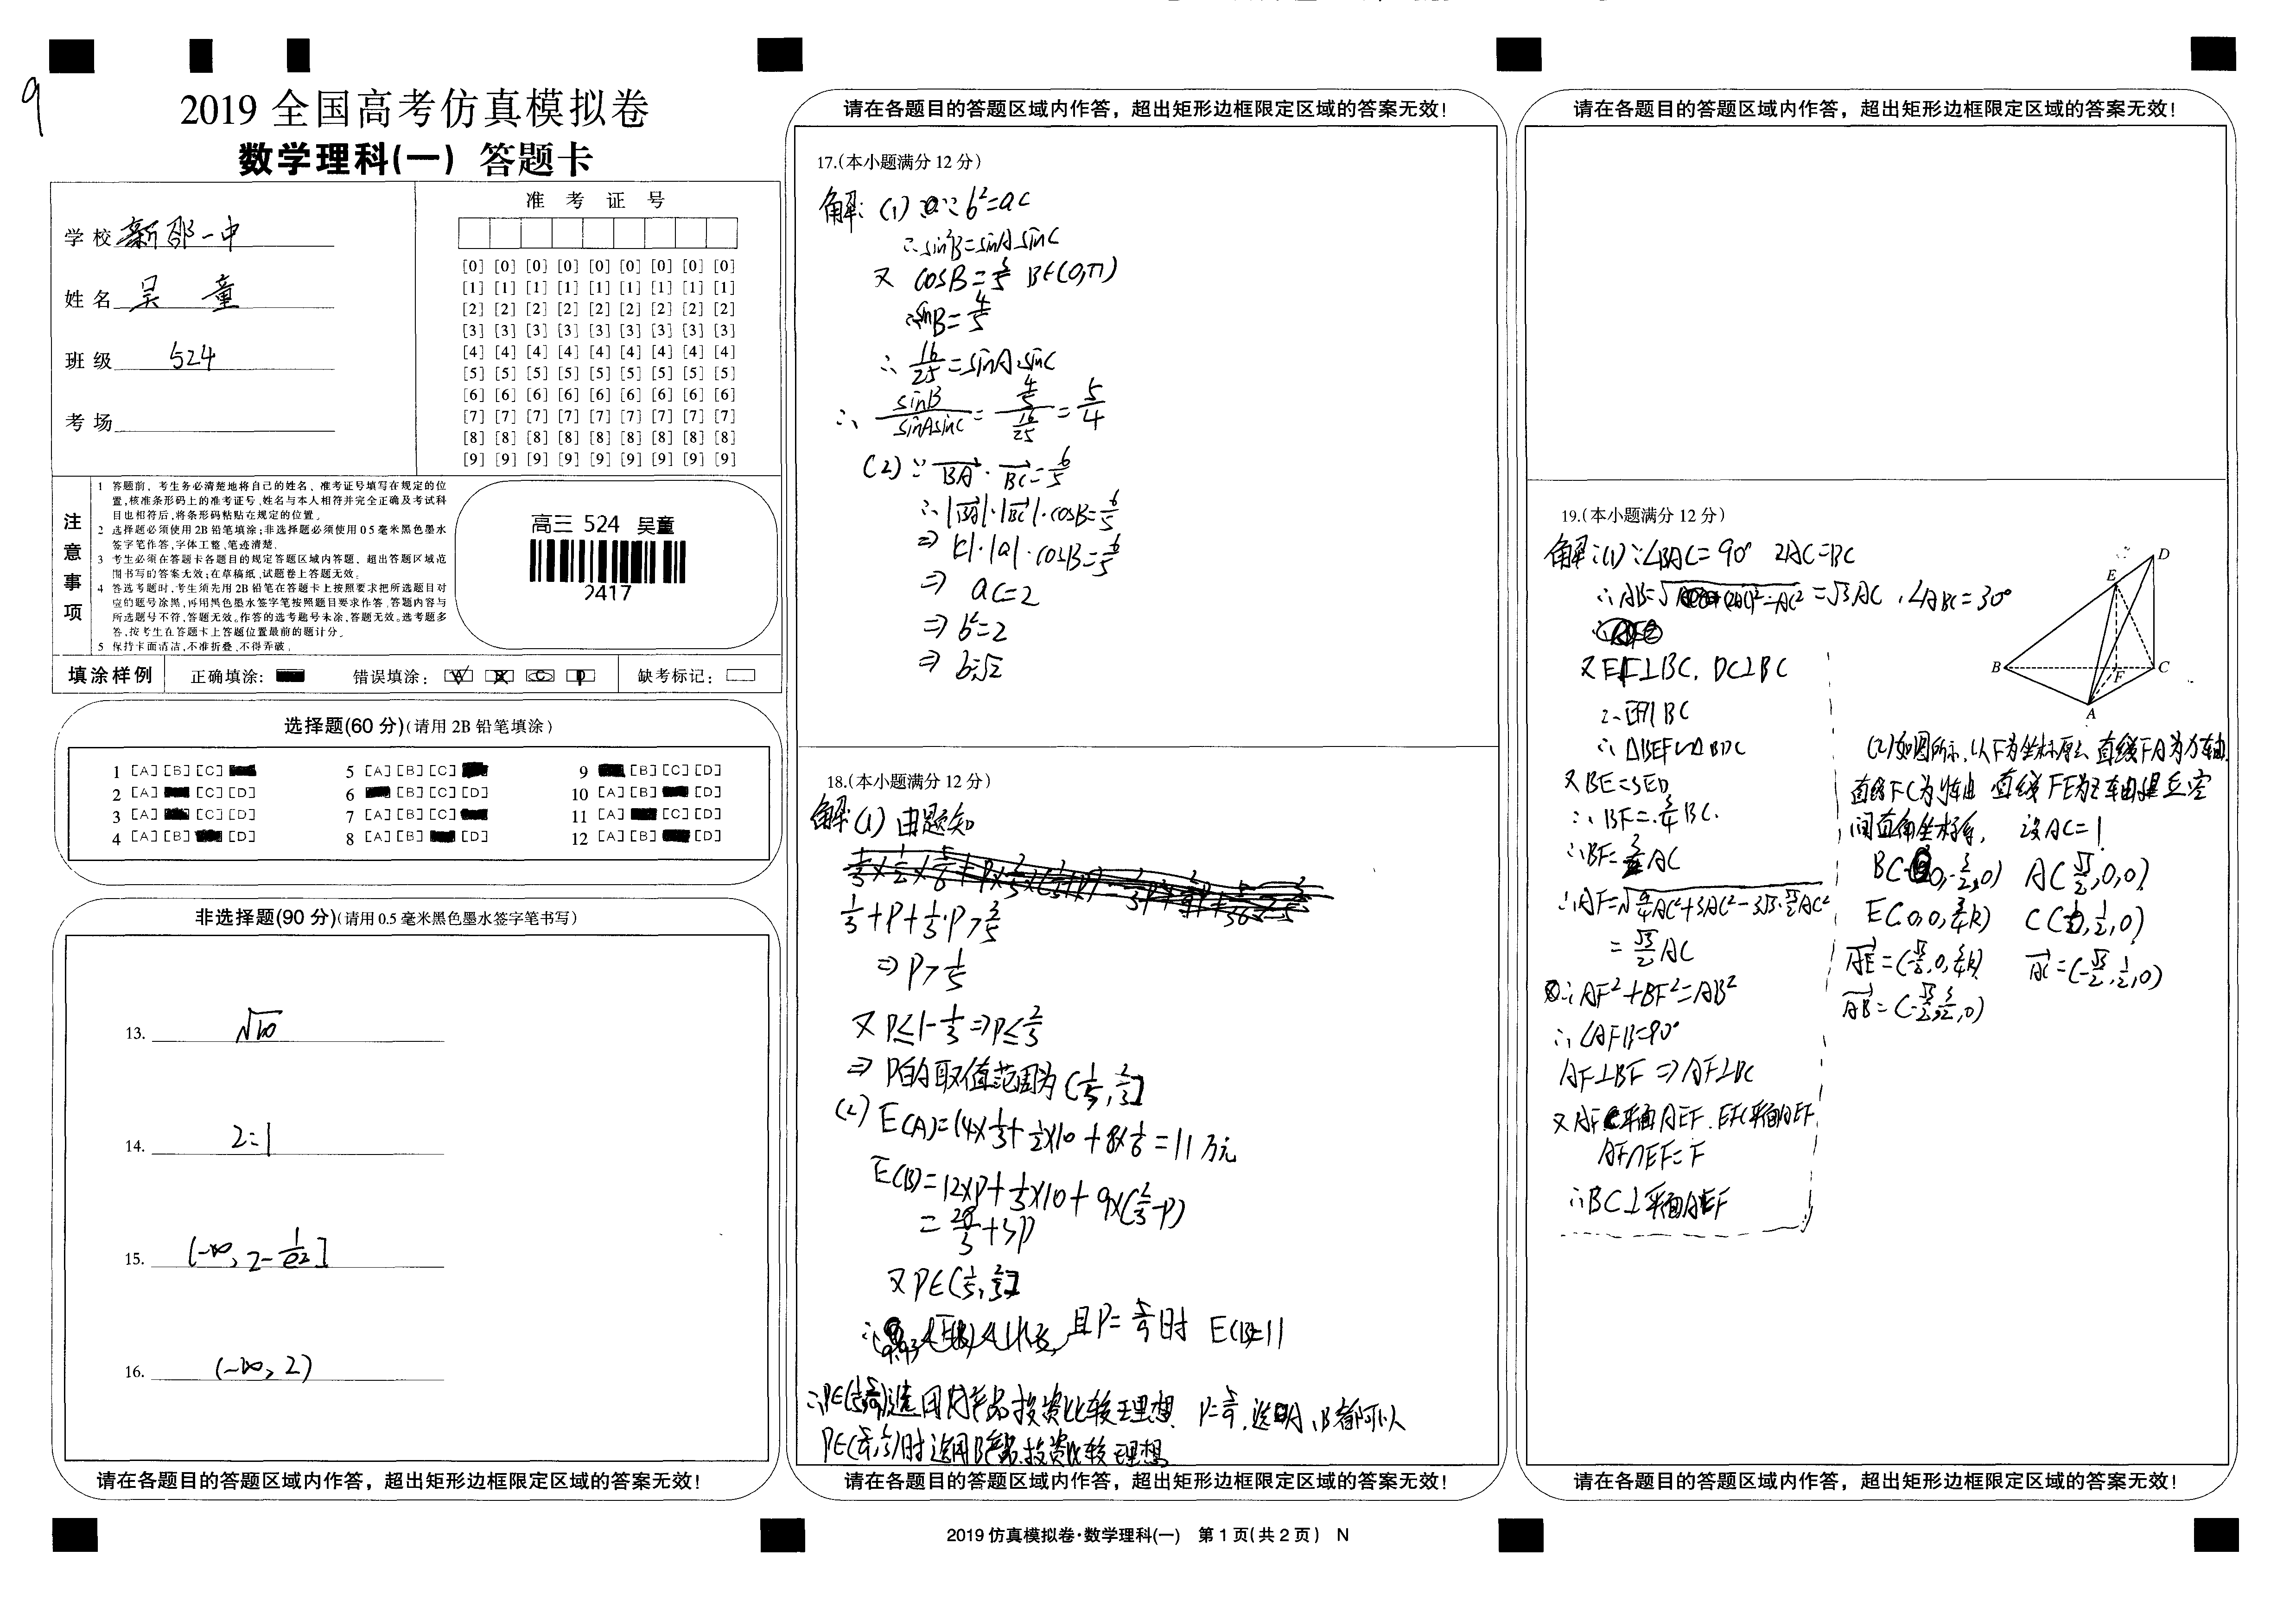 9
2019 全国高考仿真模拟卷
数学理科(一) 答题卡
学校 新邵一中
姓名 吴 童
班级 524
考场
准 考 证 号
[0] [0] [0] [0] [0] [0] [0] [0] [0]
[1] [1] [1] [1] [1] [1] [1] [1] [1]
[2] [2] [2] [2] [2] [2] [2] [2] [2]
[3] [3] [3] [3] [3] [3] [3] [3] [3]
[4] [4] [4] [4] [4] [4] [4] [4] [4]
[5] [5] [5] [5] [5] [5] [5] [5] [5]
[6] [6] [6] [6] [6] [6] [6] [6] [6]
[7] [7] [7] [7] [7] [7] [7] [7] [7]
[8] [8] [8] [8] [8] [8] [8] [8] [8]
[9] [9] [9] [9] [9] [9] [9] [9] [9]
注意事项
1 答题前，考生务必清楚地将自己的姓名、准考证号填写在规定的位
置，核准条形码上的准考证号、姓名与本人相符并完全正确及考试科
目也相符后，将条形码粘贴在规定的位置。
2 选择题必须使用2B铅笔填涂；非选择题必须使用0 5毫米黑色墨水
签字笔作答，字体工整、笔迹清楚。
3 考生必须在答题卡各题目的规定答题区域内答题，超出答题区域范
围书写的答案无效；在草稿纸、试题卷上答题无效。
4 答选考题时，考生须先用2B铅笔在答题卡上按照要求把所选题目对
应的题号涂黑，再用黑色墨水签字笔按照题目要求作答，答题内容与
所选题号不符，答题无效。作答的选考题号未涂，答题无效。选考题多
答，按考生在答题卡上答题位置最前的题计分。
5 保持卡面清洁，不准折叠、不得弄破。
高三 524 吴童
2417
填涂样例 正确填涂： 错误填涂： 缺考标记：
选择题(60 分)(请用 2B 铅笔填涂)
1 [A] [B] [C] 5 [A] [B] [C] 9 [B] [C] [D]
2 [A] [C] [D] 6 [B] [C] [D] 10 [A] [B] [D]
3 [A] [C] [D] 7 [A] [B] [C] 11 [A] [C] [D]
4 [A] [B] [D] 8 [A] [B] [D] 12 [A] [B] [D]
非选择题(90 分)(请用 0.5 毫米黑色墨水签字笔书写)
13. √10
14. 2:1
15. (-∞, 2-1/e²]
16. (-∞, 2)
请在各题目的答题区域内作答，超出矩形边框限定区域的答案无效！
请在各题目的答题区域内作答，超出矩形边框限定区域的答案无效！
17.(本小题满分 12 分)
解：(1) ∵ b²=ac
∴sin²B=sinA sinC
又 cosB=3/5 B∈(0,π)
∴sinB=4/5
∴ 16/25=sinA·sinC
∴ sinB/sinAsinC = 4/5 / 16/25 = 5/4
(2) ∵ BA · BC = 6/5
∴ |BA|·|BC|·cosB=6/5
⇒ |c|·|a|·cosB=6/5
⇒ ac=2
⇒ b²=2
⇒ b=√2
18.(本小题满分 12 分)
解：(1) 由题知
1/3+P+1/3·P>3/5
⇒ P>1/5
又 P≤1-1/3⇒P≤2/3
⇒ P的取值范围为(1/5, 2/3]
(2) E(A)=14×1/3+1/2×10+8×1/6=11万元
E(B)=12×P+1/3×10+9×(2/3-P)
=28/3+3P
又 P∈(1/5, 2/3]
且P=5/9时 E(B)=11
选用A产品投资比较理想 P=5/9, 选用A、B都可以
时选用B产品投资比较理想
请在各题目的答题区域内作答，超出矩形边框限定区域的答案无效！
2019 仿真模拟卷·数学理科(一) 第 1 页(共 2 页) N
请在各题目的答题区域内作答，超出矩形边框限定区域的答案无效！
19.(本小题满分 12 分)
解：(1) ∵∠BAC=90° 2AC=BC
∴AB=√(2AC)²-AC²=√3AC, ∠ABC=30°
又EF⊥BC, DC⊥BC
∴△BEF∽△BDC
又BE=3ED
∴BF=3/4BC.
∴BF=3/2AC
∴AF=√9/4AC²+3AC²-3√3·√3/2AC²
=√3/2AC
∴AF²+BF²=AB²
∴∠AFB=90°
AF⊥BF ⇒AF⊥BC
又AF⊂平面AEF, EF⊂平面AEF,
AF∩EF=F
∴BC⊥平面AEF
D
E
B
C
F
A
(2)如图所示,以F为坐标原点 直线FA为x轴,
直线FC为y轴 直线FE为z轴建立空
间直角坐标系, 设AC=1
B(0,-3/2,0) A(√3/2,0,0)
E(0,0,3/4k) C(0,1/2,0)
AE=(-√3/2,0,3/4k) AC=(-√3/2,1/2,0)
AB=(-√3/2,-3/2,0)
请在各题目的答题区域内作答，超出矩形边框限定区域的答案无效！